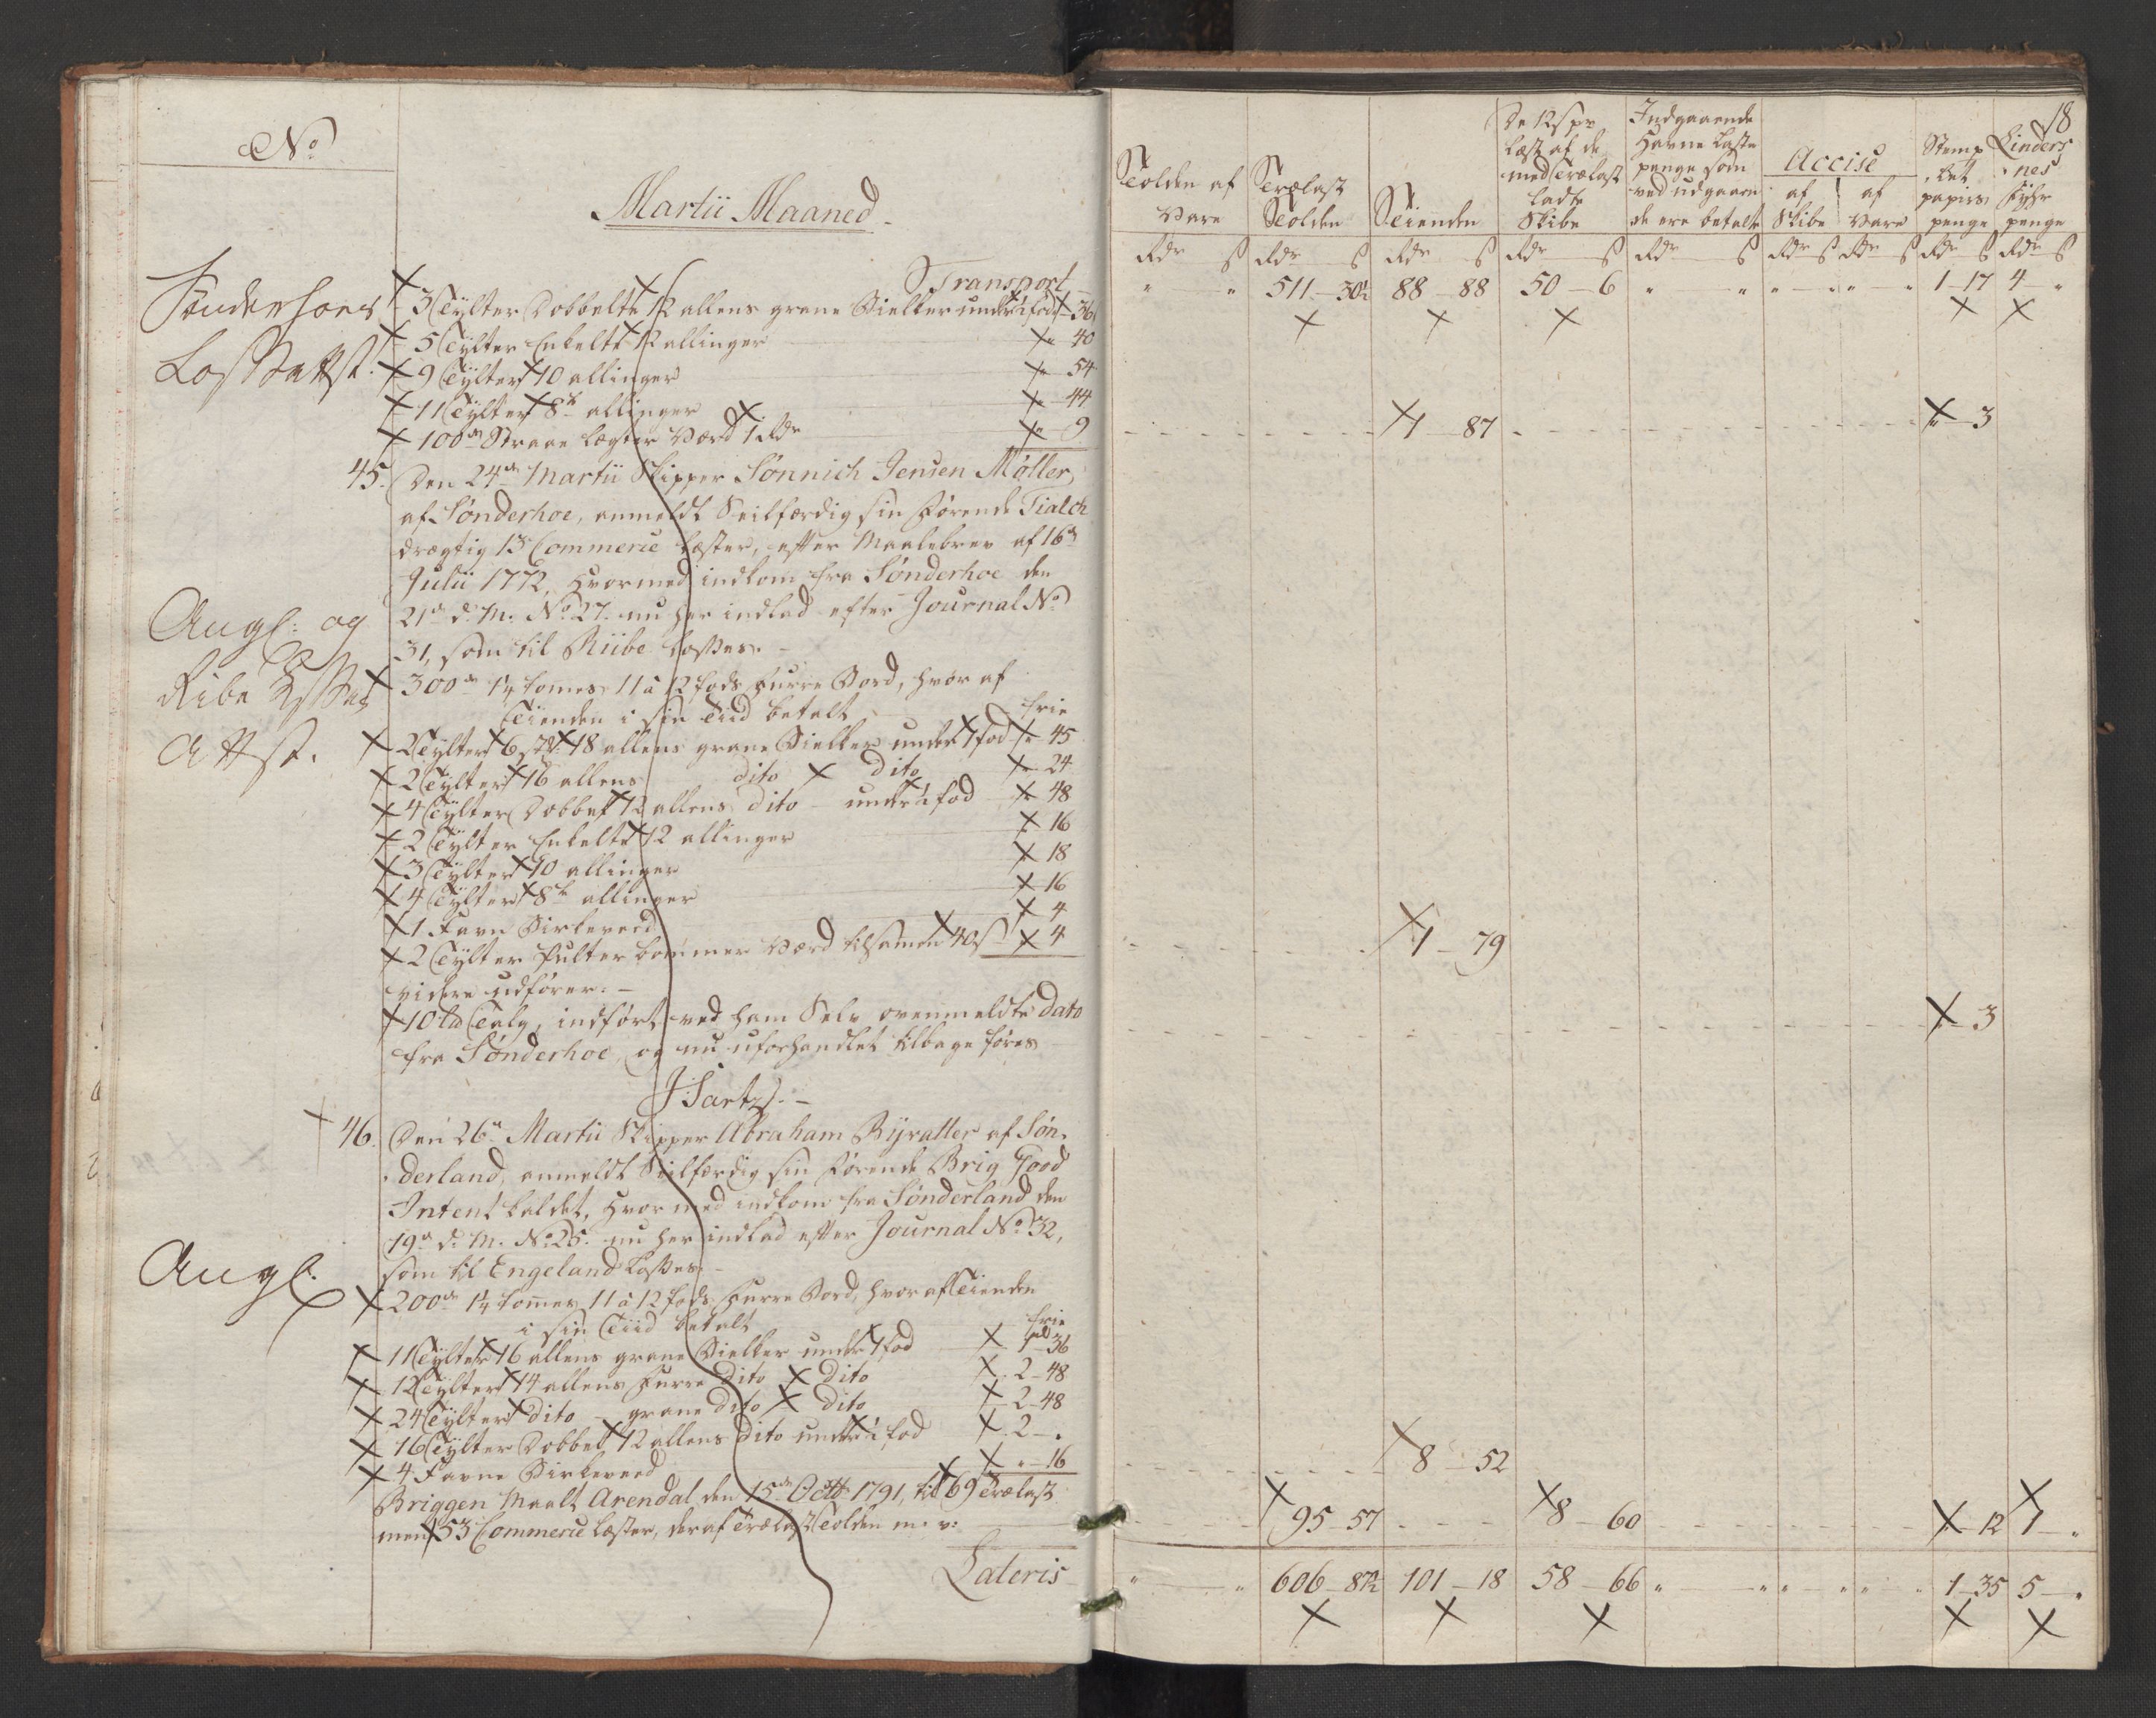 No
Martii Maaned
Transport
Sønderhoes
Loss Attst.
3 Tylter Dobbelte 12 allens grane Bielker under 1 fod 36
5 Tylter Enkelte 12 allinger " 40
9 Tylter 10 allinger " 54
11 Tylter 8te allinger " 44
100de Straae Legter Værd 1 Rdr " 9
45. Den 24de Martii Skipper Sønnich Jensen Møller
af Sønderhoe, anmeldt Seilfærdig sin førende Tialch
drægtig 13 Commerce Læster, efter Maalebrev af 16de
Julii 1772, hvormed indkom fra Sønderhoe den
21de d: M: No 27. nu her indlad efter Journal No
31, som til Riibe Losses.
Angl: og
Ribe
Attst.
300de 1 1/4 tomes 11 à 12 fods furre Bord, hvor af
Tienden i sin Tiid betalt frie
2 Tylter 6 st. 18 allens grane Bielker under 1 fod " 45
2 Tylter 16 allens dito dito " 24
4 Tylter Dobbel 12 allens dito under 1 fod 48
2 Tylter Enkelte 12 allinger 16
3 Tylter 10 allinger 18
4 Tylter 8te allinger 16
1 Favn Birkeved 4
2 Tylter Pulter bommer Værd tilsamen 40 s 4
videre udfører:
10 Talg, indført ved ham Selv ovenmeldte Dato
fra Sønderhoe, og nu uforhandlet tilbage føres
46. Den 26de Martii Skipper Abraham Byratter af Søn-
derland, anmeldt Seilfærdig sin førende Brig Good
Intent kaldet, hvor med indkom fra Sønderland den
19de d: M: No 25. nu her indlad efter Journal No 32,
som til Engeland Losses.
Angl.
200de 1 1/4 tommes 11 à 12 fods furre Bord, hvor af Tienden
i sin Tiid betalt frie
11 Tylter 16 allens grane Bielker under 1 fod 1-36
12 Tylter 14 allens furre dito dito 2-48
24 Tylter dito grane dito dito 2-48
16 Tylter Dobbel 12 allens dito under 1 fod 2-"
4 Favne Birkeved "-16
Briggen Maalt Arendal den 15de Octb 1791, til 69 Trælast
men 53 Commerce Læster, der af Trælast Tolden m. v:
Lateris
18
Tolden af Vare
Trælast Tolden
Tienden
De 12 s pr læst af de med Trælast ladte Skibe
Indgaaende Havne Laste penge som ved udgaaende ere betalt
Accise
af Skibe
af Vare
Stemplet papiirs penge
Lindersnes fyhr penge
Rdr s Rdr s Rdr s Rdr s Rdr s Rdr s Rdr s Rdr s Rdr s
" " 511-30½ 88-88 50-6 " " " " " " 1-17 4-"
1-87 "-3
1-79
"-3
8-52
95-57 8-60 "-12 1-"
" " 606-87½ 101-18 58-66 " " " " " " 1-35 5-"